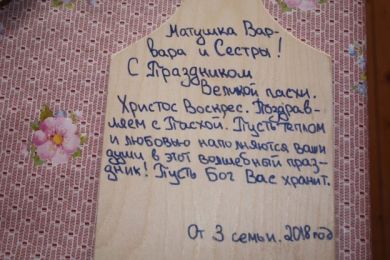 Матушка Вар-
вара и Сестры!
С Праздником
Великой пасхи.
Христос Воскрес. Поздрав-
ляем с Пасхой. Пусть теплом
и любовью наполняются ваши
души в этот волшебный праз-
дник! Пусть Бог Вас хранит.
От 3 семьи. 2018 год